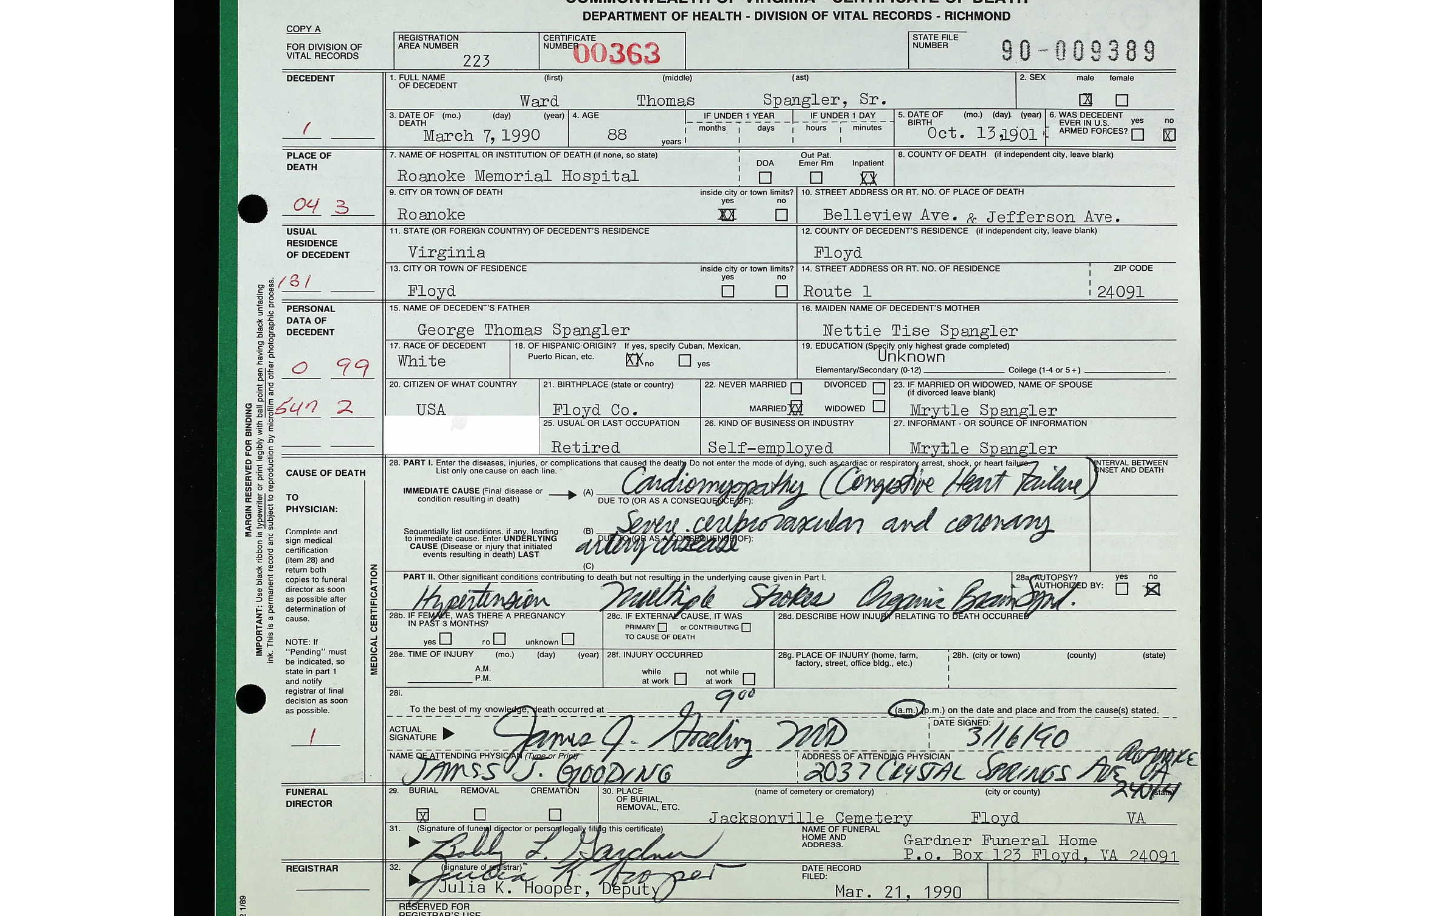 COMMONWEALTH OF VIRGINIA - CERTIFICATE OF DEATH
DEPARTMENT OF HEALTH - DIVISION OF VITAL RECORDS - RICHMOND
COPY A
FOR DIVISION OF VITAL RECORDS
REGISTRATION AREA NUMBER 223
CERTIFICATE NUMBER 00363
STATE FILE NUMBER 90-009389
DECEDENT
1. FULL NAME OF DECEDENT (first) (middle) (last)
Ward Thomas Spangler, Sr.
2. SEX male female
X
1
3. DATE OF DEATH (mo.) (day) (year)
March 7, 1990
4. AGE
88 years
IF UNDER 1 YEAR months days
IF UNDER 1 DAY hours minutes
5. DATE OF BIRTH (mo.) (day) (year)
Oct. 13,1901
6. WAS DECEDENT EVER IN U.S. ARMED FORCES? yes no
X
PLACE OF DEATH
7. NAME OF HOSPITAL OR INSTITUTION OF DEATH (if none, so state)
Roanoke Memorial Hospital
DOA Out Pat. Emer Rm Inpatient
XX
8. COUNTY OF DEATH (if independent city, leave blank)
04 3
9. CITY OR TOWN OF DEATH
Roanoke
inside city or town limits? yes no
XX
10. STREET ADDRESS OR RT. NO. OF PLACE OF DEATH
Belleview Ave. & Jefferson Ave.
USUAL RESIDENCE OF DECEDENT
11. STATE (OR FOREIGN COUNTRY) OF DECEDENT'S RESIDENCE
Virginia
12. COUNTY OF DECEDENT'S RESIDENCE (if independent city, leave blank)
Floyd
131
13. CITY OR TOWN OF RESIDENCE
Floyd
inside city or town limits? yes no
14. STREET ADDRESS OR RT. NO. OF RESIDENCE
Route 1
ZIP CODE
24091
PERSONAL DATA OF DECEDENT
15. NAME OF DECEDENT'S FATHER
George Thomas Spangler
16. MAIDEN NAME OF DECEDENT'S MOTHER
Nettie Tise Spangler
0 99
17. RACE OF DECEDENT
White
18. OF HISPANIC ORIGIN? If yes, specify Cuban, Mexican, Puerto Rican, etc.
XX no yes
19. EDUCATION (Specify only highest grade completed)
Unknown
Elementary/Secondary (0-12) College (1-4 or 5+)
547 2
20. CITIZEN OF WHAT COUNTRY
USA
21. BIRTHPLACE (state or country)
Floyd Co.
22. NEVER MARRIED DIVORCED
MARRIED XX WIDOWED
23. IF MARRIED OR WIDOWED, NAME OF SPOUSE (if divorced leave blank)
Mrytle Spangler
25. USUAL OR LAST OCCUPATION
Retired
26. KIND OF BUSINESS OR INDUSTRY
Self-employed
27. INFORMANT - OR SOURCE OF INFORMATION
Mrytle Spangler
MARGIN RESERVED FOR BINDING
IMPORTANT: Use black ribbon in typewriter or print legibly with ball point pen having black unfading
ink. This is a permanent record and subject to reproduction by microfilm and other photographic process.
CAUSE OF DEATH
TO PHYSICIAN:
Complete and sign medical certification (item 28) and return both copies to funeral director as soon as possible after determination of cause.
NOTE: If "Pending" must be indicated, so state in part 1 and notify registrar of final decision as soon as possible.
1
MEDICAL CERTIFICATION
28. PART I. Enter the diseases, injuries, or complications that caused the death. Do not enter the mode of dying, such as cardiac or respiratory arrest, shock, or heart failure.
List only one cause on each line.
INTERVAL BETWEEN ONSET AND DEATH
IMMEDIATE CAUSE (Final disease or condition resulting in death)
(A) Cardiomyopathy (Congestive Heart Failure)
DUE TO (OR AS A CONSEQUENCE OF):
Sequentially list conditions, if any, leading to immediate cause. Enter UNDERLYING CAUSE (Disease or injury that initiated events resulting in death) LAST
(B) Severe cerebrovascular and coronary
artery disease
DUE TO (OR AS A CONSEQUENCE OF):
(C)
PART II. Other significant conditions contributing to death but not resulting in the underlying cause given in Part I.
Hypertension Multiple Strokes Organic Brain Synd.
28a. AUTOPSY? AUTHORIZED BY: yes no
X
28b. IF FEMALE, WAS THERE A PREGNANCY IN PAST 3 MONTHS?
yes no unknown
28c. IF EXTERNAL CAUSE, IT WAS
PRIMARY or CONTRIBUTING
TO CAUSE OF DEATH
28d. DESCRIBE HOW INJURY RELATING TO DEATH OCCURRED
28e. TIME OF INJURY (mo.) (day) (year)
A.M.
P.M.
28f. INJURY OCCURRED
while at work not while at work
28g. PLACE OF INJURY (home, farm, factory, street, office bldg., etc.)
28h. (city or town) (county) (state)
28i.
To the best of my knowledge, death occurred at 9 00 (a.m.) (p.m.) on the date and place and from the cause(s) stated.
ACTUAL SIGNATURE James J. Gooding MD
DATE SIGNED: 3/16/90
NAME OF ATTENDING PHYSICIAN (Type or Print)
JAMSS J. GOODING
ADDRESS OF ATTENDING PHYSICIAN
2037 CRYSTAL SPRINGS AVE ROANOKE VA 24014
FUNERAL DIRECTOR
29. BURIAL REMOVAL CREMATION
X
30. PLACE OF BURIAL, REMOVAL, ETC.
(name of cemetery or crematory) (city or county) (state)
Jacksonville Cemetery Floyd VA
31. (Signature of funeral director or person legally filing this certificate)
Bobby L. Gardner
NAME OF FUNERAL HOME AND ADDRESS:
Gardner Funeral Home
P.o. Box 123 Floyd, VA 24091
REGISTRAR
32. (signature of registrar)
Julia K. Hooper
Julia K. Hooper, Deputy
DATE RECORD FILED:
Mar. 21, 1990
RESERVED FOR REGISTRAR'S USE
1/89